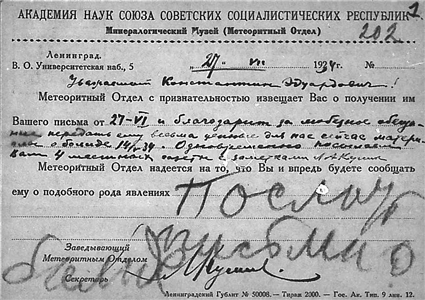 АКАДЕМИЯ НАУК СОЮЗА СОВЕТСКИХ СОЦИАЛИСТИЧЕСКИХ РЕСПУБЛИК
Минералогический Музей (Метеоритный Отдел)
202
Ленинград.
В. О. Университетская наб., 5
27 VII 1934 г. №
Уважаемый Константин Эдуардович!
Метеоритный Отдел с признательностью извещает Вас о получении им
Вашего письма от 27-VI и благодарит за любезное обеща-
ние передать ему весьма ценные для нас сейчас матери-
алы о болиде 14/ 34. Одновременно посылаем
Вам 4 газеты с заметками Л. А. Кулика
Метеоритный Отдел надеется на то, что Вы и впредь будете сообщать
ему о подобного рода явлениях
Послал
письмо
Заведывающий
Метеоритным Отделом
Секретарь
Ленинградский Гублит № 50008. – Тираж 2000. – Гос. Ак. Тип. 9 лин. 12.